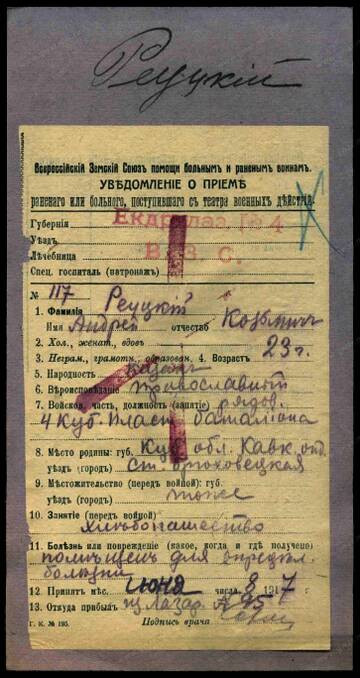 Реуцкій
Всероссійскій Земскій Союзъ помощи больнымъ и раненымъ воинамъ.
УВѢДОМЛЕНІЕ О ПРІЕМѢ
раненаго или больного, поступившаго съ театра военныхъ дѣйствій.
Губернія
Уѣздъ
Лѣчебница В. З. С.
Спец. госпиталь (патронажъ)
№ 117
1. Фамилія Реуцкій
Имя Андрей отчество Козьмичъ
2. Хол., женат., вдовъ
3. Неграм., грамотн., образован. 4. Возрастъ 23 г.
5. Народность казакъ
6. Вѣроисповѣданіе православный
7. Войсков. часть, должность (занятіе) рядов.
4 Куб. Пласт. баталіона
8. Мѣсто родины: губ. Куб. обл. Кавк. отд.
уѣздъ (городъ) ст. Брюховецкая
9. Мѣстожительство (передъ войной): губ.
уѣздъ (городъ) тоже
10. Занятіе (передъ войной)
хлѣбопашество
11. Болѣзнь или поврежденіе (какое, когда и гдѣ получено)
помѣщенъ для опредѣл.
болѣзни
12. Принятъ мѣс. іюня числа 8 1917 г.
13. Откуда прибылъ лазар. № 95
Г. К. № 195. Подпись врача